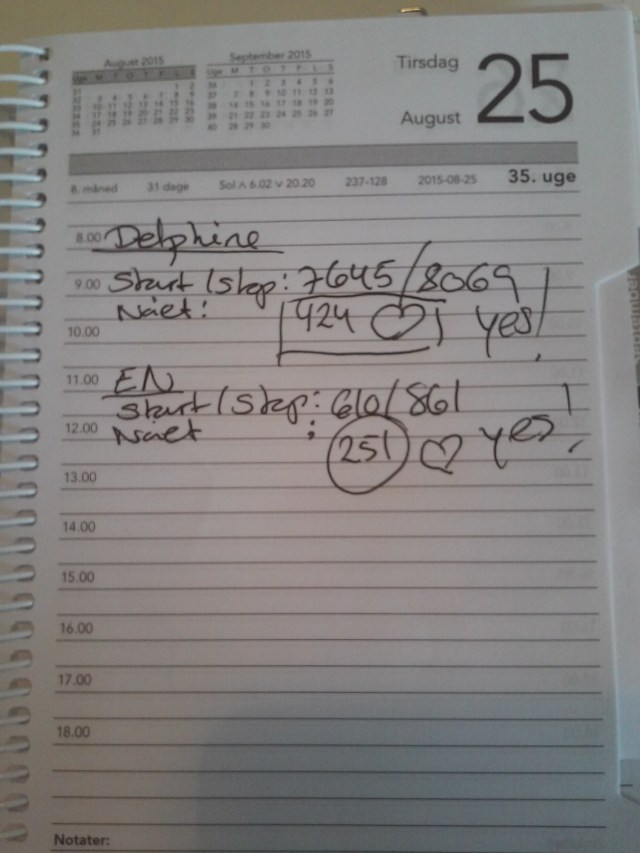 August 2015
September 2015
Tirsdag
25
August
8. måned 31 dage Sol ʌ 6.02 v 20.20 237-128 2015-08-25 35. uge
8.00 Delphine
9.00 Start/stop: 7645/8069
Nået: 424 ♡ yes!
10.00
11.00 EN
Start/stop: 610/861
12.00 Nået : 251 ♡ yes!
13.00
14.00
15.00
16.00
17.00
18.00
Notater: